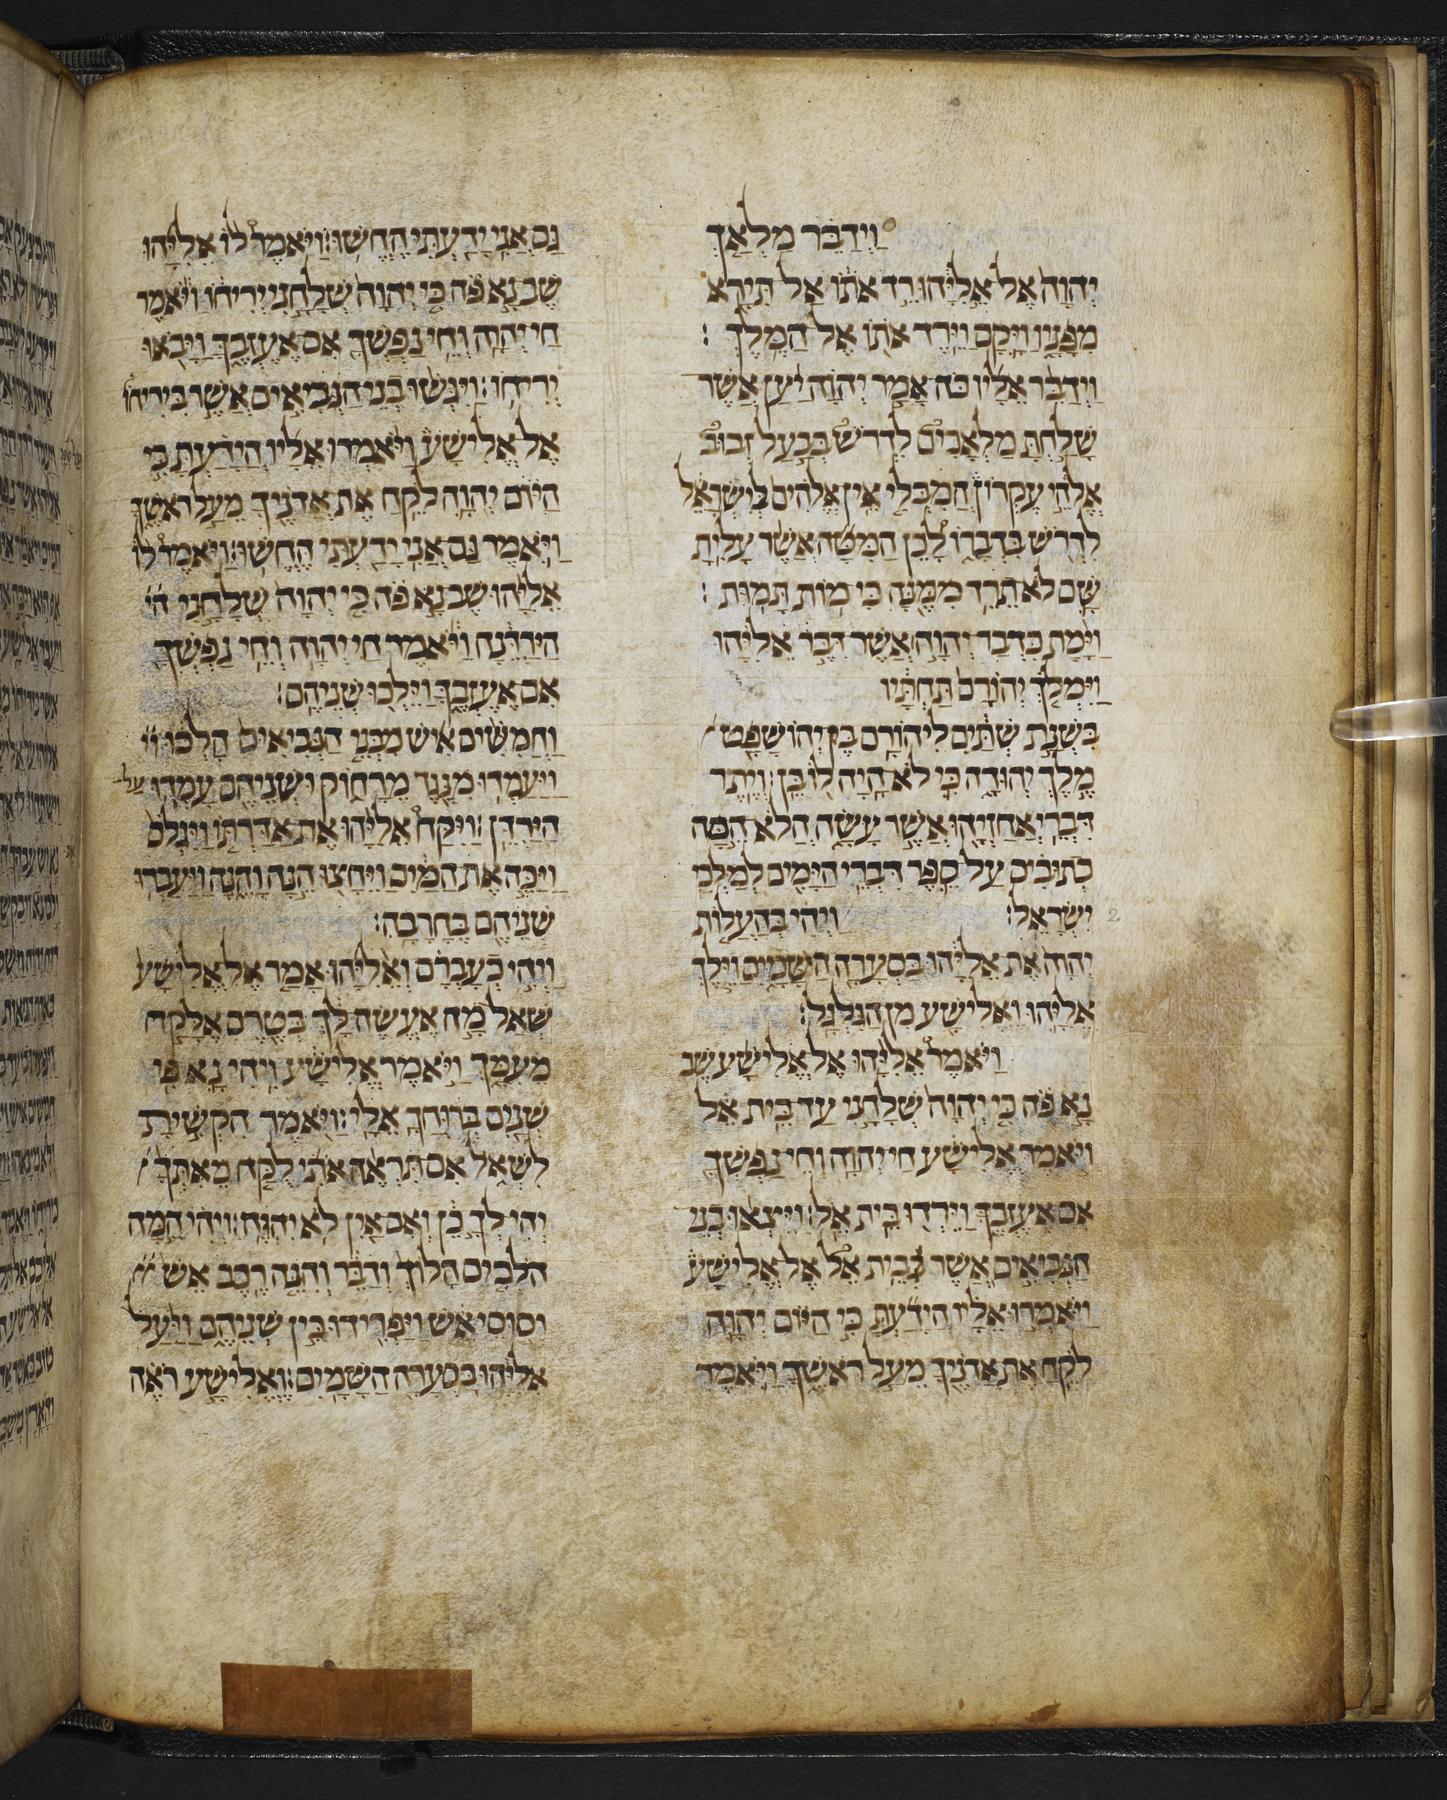 וַיְדַבֵּר מַלְאַךְ
יְהוָה אֶל אֵלִיָּהוּ רֵד אֹתוֹ אַל תִּירָא
מִפָּנָיו וַיָּקָם וַיֵּרֶד אֹתוֹ אֶל הַמֶּלֶךְ׃
וַיְדַבֵּר אֵלָיו כֹּה אָמַר יְהוָה יַעַן אֲשֶׁר
שָׁלַחְתָּ מַלְאָכִים לִדְרֹשׁ בְּבַעַל זְבוּב
אֱלֹהֵי עֶקְרוֹן הַמִבְּלִי אֵין אֱלֹהִים בְּיִשְׂרָאֵל
לִדְרֹשׁ בִּדְבָרוֹ לָכֵן הַמִּטָּה אֲשֶׁר עָלִיתָ
שָּׁם לֹא תֵרֵד מִמֶּנָּה כִּי מוֹת תָּמוּת׃
וַיָּמָת כִּדְבַר יְהוָה אֲשֶׁר דִּבֶּר אֵלִיָּהוּ
וַיִּמְלֹךְ יְהוֹרָם תַּחְתָּיו
בִּשְׁנַת שְׁתַּיִם לִיהוֹרָם בֶּן יְהוֹשָׁפָט
מֶלֶךְ יְהוּדָה כִּי לֹא הָיָה לוֹ בֵּן׃ וְיֶתֶר
דִּבְרֵי אֲחַזְיָהוּ אֲשֶׁר עָשָׂה הֲלֹא הֵמָּה
כְתוּבִים עַל סֵפֶר דִּבְרֵי הַיָּמִים לְמַלְכֵי
יִשְׂרָאֵל׃ וַיְהִי בְּהַעֲלוֹת
יְהוָה אֶת אֵלִיָּהוּ בַּסְעָרָה הַשָּׁמָיִם וַיֵּלֶךְ
אֵלִיָּהוּ וֶאֱלִישָׁע מִן הַגִּלְגָּל׃
וַיֹּאמֶר אֵלִיָּהוּ אֶל אֱלִישָׁע שֵׁב
נָא פֹה כִּי יְהוָה שְׁלָחַנִי עַד בֵּית אֵל
וַיֹּאמֶר אֱלִישָׁע חַי יְהוָה וְחֵי נַפְשְׁךָ
אִם אֶעֶזְבֶךָּ וַיֵּרְדוּ בֵּית אֵל׃ וַיֵּצְאוּ בְנֵי
הַנְּבִיאִים אֲשֶׁר בְּבֵית אֵל אֶל אֱלִישָׁע
וַיֹּאמְרוּ אֵלָיו הֲיָדַעְתָּ כִּי הַיּוֹם יְהוָה
לֹקֵחַ אֶת אֲדֹנֶיךָ מֵעַל רֹאשֶׁךָ וַיֹּאמֶר
גַּם אֲנִי יָדַעְתִּי הֶחֱשׁוּ׃ וַיֹּאמֶר לוֹ אֵלִיָּהוּ
שֵׁב נָא פֹה כִּי יְהוָה שְׁלָחַנִי יְרִיחוֹ וַיֹּאמֶר
חַי יְהוָה וְחֵי נַפְשְׁךָ אִם אֶעֶזְבֶךָּ וַיָּבֹאוּ
יְרִיחוֹ׃ וַיִּגְּשׁוּ בְנֵי הַנְּבִיאִים אֲשֶׁר בִּירִיחוֹ
אֶל אֱלִישָׁע וַיֹּאמְרוּ אֵלָיו הֲיָדַעְתָּ כִּי
הַיּוֹם יְהוָה לֹקֵחַ אֶת אֲדֹנֶיךָ מֵעַל רֹאשֶׁךָ
וַיֹּאמֶר גַּם אֲנִי יָדַעְתִּי הֶחֱשׁוּ׃ וַיֹּאמֶר לוֹ
אֵלִיָּהוּ שֵׁב נָא פֹה כִּי יְהוָה שְׁלָחַנִי הי
הַיַּרְדֵּנָה וַיֹּאמֶר חַי יְהוָה וְחֵי נַפְשְׁךָ
אִם אֶעֶזְבֶךָּ וַיֵּלְכוּ שְׁנֵיהֶם׃
וַחֲמִשִּׁים אִישׁ מִבְּנֵי הַנְּבִיאִים הָלְכוּ
וַיַּעַמְדוּ מִנֶּגֶד מֵרָחוֹק וּשְׁנֵיהֶם עָמְדוּ עַל
הַיַּרְדֵּן׃ וַיִּקַּח אֵלִיָּהוּ אֶת אַדַּרְתּוֹ וַיִּגְלֹם
וַיַּכֶּה אֶת הַמַּיִם וַיֵּחָצוּ הֵנָּה וָהֵנָּה וַיַּעַבְרוּ
שְׁנֵיהֶם בֶּחָרָבָה׃
וַיְהִי כְעָבְרָם וְאֵלִיָּהוּ אָמַר אֶל אֱלִישָׁע
שְׁאַל מָה אֶעֱשֶׂה לָּךְ בְּטֶרֶם אֶלָּקַח
מֵעִמָּךְ וַיֹּאמֶר אֱלִישָׁע וִיהִי נָא פִּי
שְׁנַיִם בְּרוּחֲךָ אֵלָי׃ וַיֹּאמֶר הִקְשִׁיתָ
לִשְׁאוֹל אִם תִּרְאֶה אֹתִי לֻקָּח מֵאִתָּךְ
יְהִי לְךָ כֵן וְאִם אַיִן לֹא יִהְיֶה׃ וַיְהִי הֵמָּה
הֹלְכִים הָלוֹךְ וְדַבֵּר וְהִנֵּה רֶכֶב אֵשׁ
וְסוּסֵי אֵשׁ וַיַּפְרִדוּ בֵּין שְׁנֵיהֶם וַיַּעַל
אֵלִיָּהוּ בַּסְעָרָה הַשָּׁמָיִם׃ וֶאֱלִישָׁע רֹאֶה